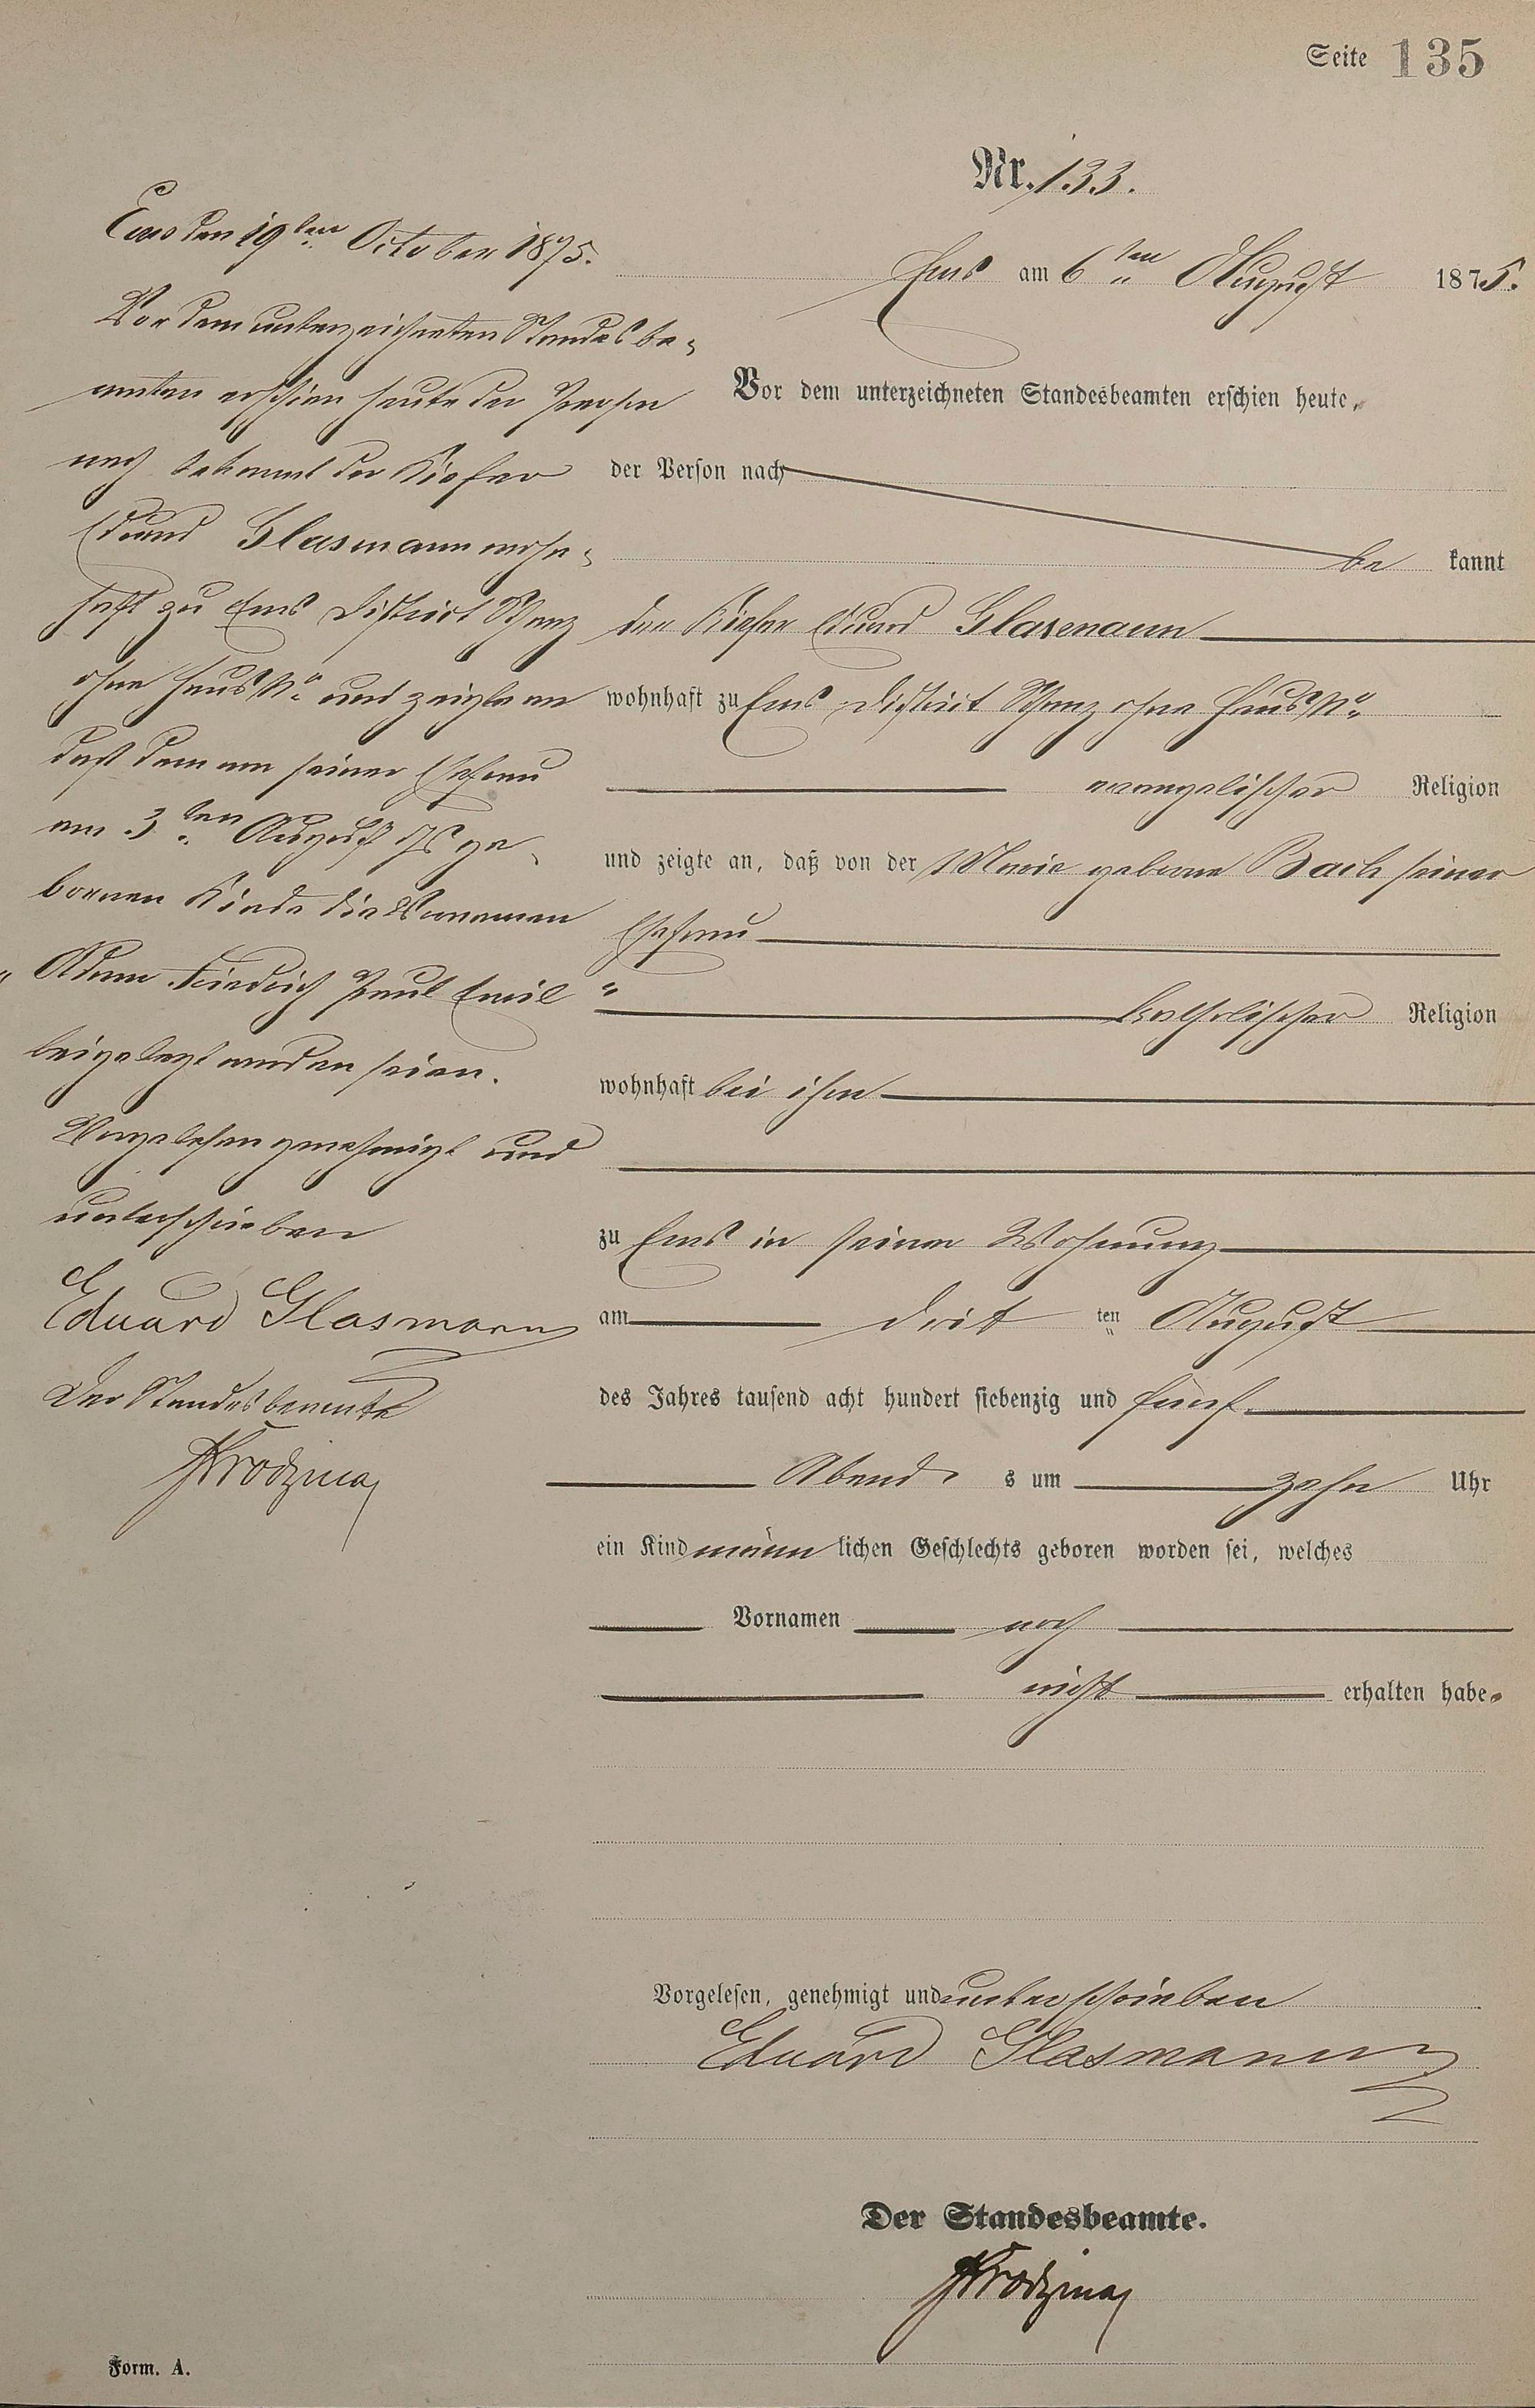 Seite 135
Nr. 133.
Ems am 6ten August 1875.
Vor dem unterzeichneten Standesbeamten erschien heute,
der Person nach
be kannt
der Küfer Eduard Glasmann
wohnhaft zu Ems District Schanz ohne Haus No
evangelischer Religion
und zeigte an, daß von der Marie geborne Bach seiner
Ehefrau
katholischer Religion
wohnhaft bei ihm
zu Ems in seiner Wohnung
am dritten August
des Jahres tausend acht hundert siebenzig und fünf
Abends um zehn Uhr
ein Kind männlichen Geschlechts geboren worden sei, welches
Vornamen noch
nicht erhalten habe.
Vorgelesen, genehmigt und unterschrieben
Eduard Glasmann
Der Standesbeamte.
Form. A.
Ems den 19ten October 1875.
Vor dem unterzeichneten Standesbe-
amten erschien heute der Person
nach bekannt der Küfer
Eduard Glasmann wohn-
haft zu Ems District Schanz
ohne Haus No und zeigte an
daß dem von seiner Ehefrau
am 3ten August Js ge-
bornen Kinde die Vornamen
"Adam Friedrich Paul Emil"
beigelegt worden seien.
Vorgelesen genehmigt und
unterschrieben
Eduard Glasmann
Der Standesbeamte